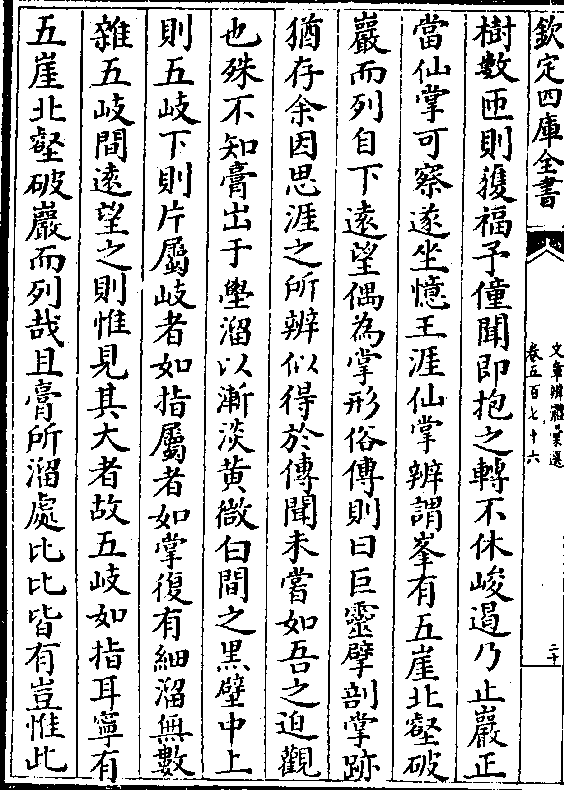 欽定四庫全書
文章辨體彙選
卷五百七十六
二十
樹數匝則獲福予僮聞即抱之轉不休峻遏乃止巖正
當仙掌可察遂坐憶王涯仙掌辨謂峯有五崖北壑破
巖而列自下遠望偶為掌形俗傳則曰巨靈擘剖掌跡
猶存余因思涯之所辨似得於傳聞未嘗如吾之迫觀
也殊不知膏出于壆溜以漸淡黃微白間之黒壁中上
則五岐下則片屬岐者如指屬者如掌復有細溜無數
雜五岐間遠望之則惟見其大者故五岐如指耳寧有
五崖北壑破巖而列哉且膏所溜處比比皆有豈惟此